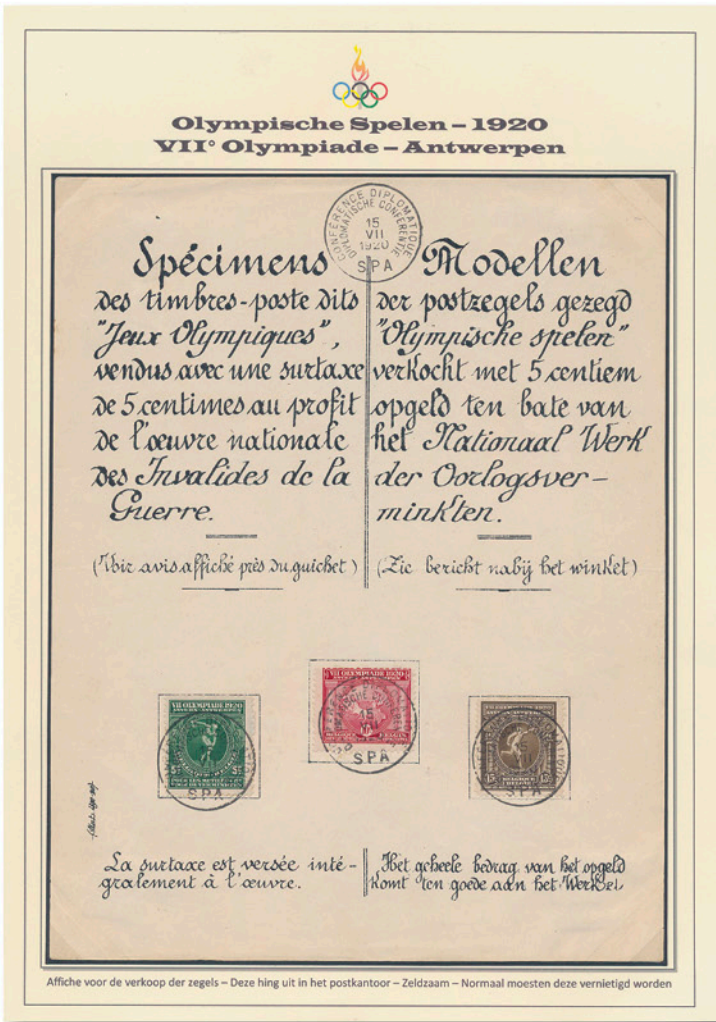 Olympische Spelen – 1920
VII° Olympiade – Antwerpen
CONFÉRENCE DIPLOMATIQUE
DIPLOMATISCHE CONFERENTIE
15
VII
1920
SPA
Spécimens
des timbres-poste dits
"Jeux Olympiques",
vendus avec une surtaxe
de 5 centimes au profit
de l'œuvre nationale
des Invalides de la
Guerre.
(Voir avis affiché près du guichet)
Modellen
der postzegels gezegd
"Olympische spelen"
verkocht met 5 centiem
opgeld ten bate van
het Nationaal Werk
der Oorlogsver-
minkten.
(Zie bericht nabij het winket)
VII OLYMPIADE 1920
5c 5c
SPA
VII OLYMPIADE 1920
15
VII
BELGIQUE BELGIË
SPA
15 15
BELGIQUE
SPA
La surtaxe est versée inté-
gralement à l'œuvre.
Het geheele bedrag van het opgeld
komt ten goede aan het Werk
Affiche voor de verkoop der zegels – Deze hing uit in het postkantoor – Zeldzaam – Normaal moesten deze vernietigd worden